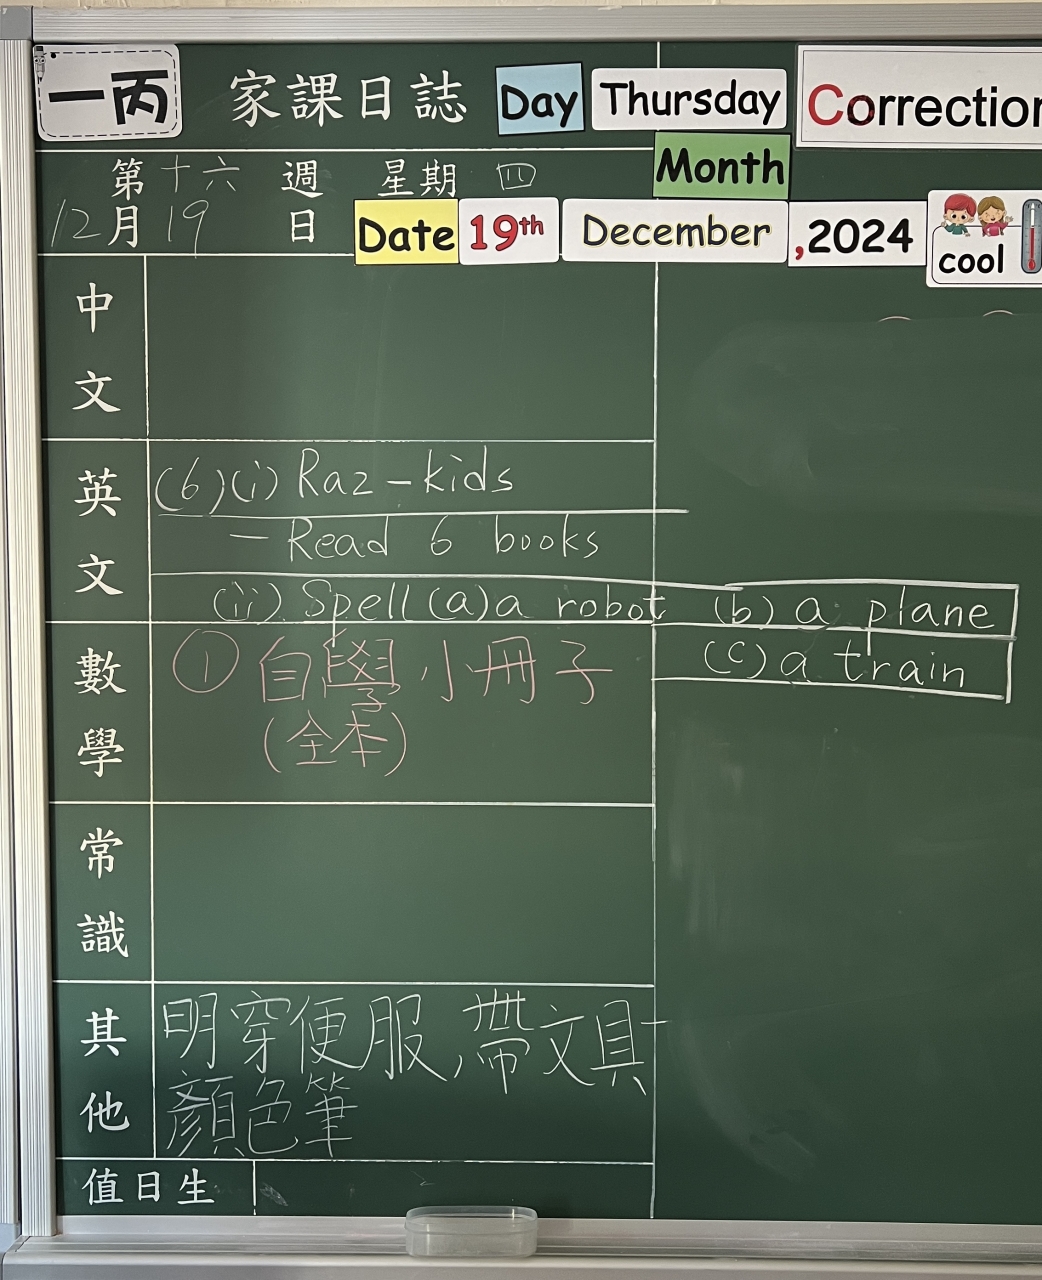 一丙 家課日誌 Day Thursday Correction
Month
第十六週 星期四
12月19日 Date 19th December ,2024 cool
中文
英文
(6)(i) Raz-kids
— Read 6 books
(ii) Spell (a) a robot (b) a plane
(c) a train
數學
① 自學小冊子
(全本)
常識
其他
明穿便服,帶文具
顏色筆
值日生